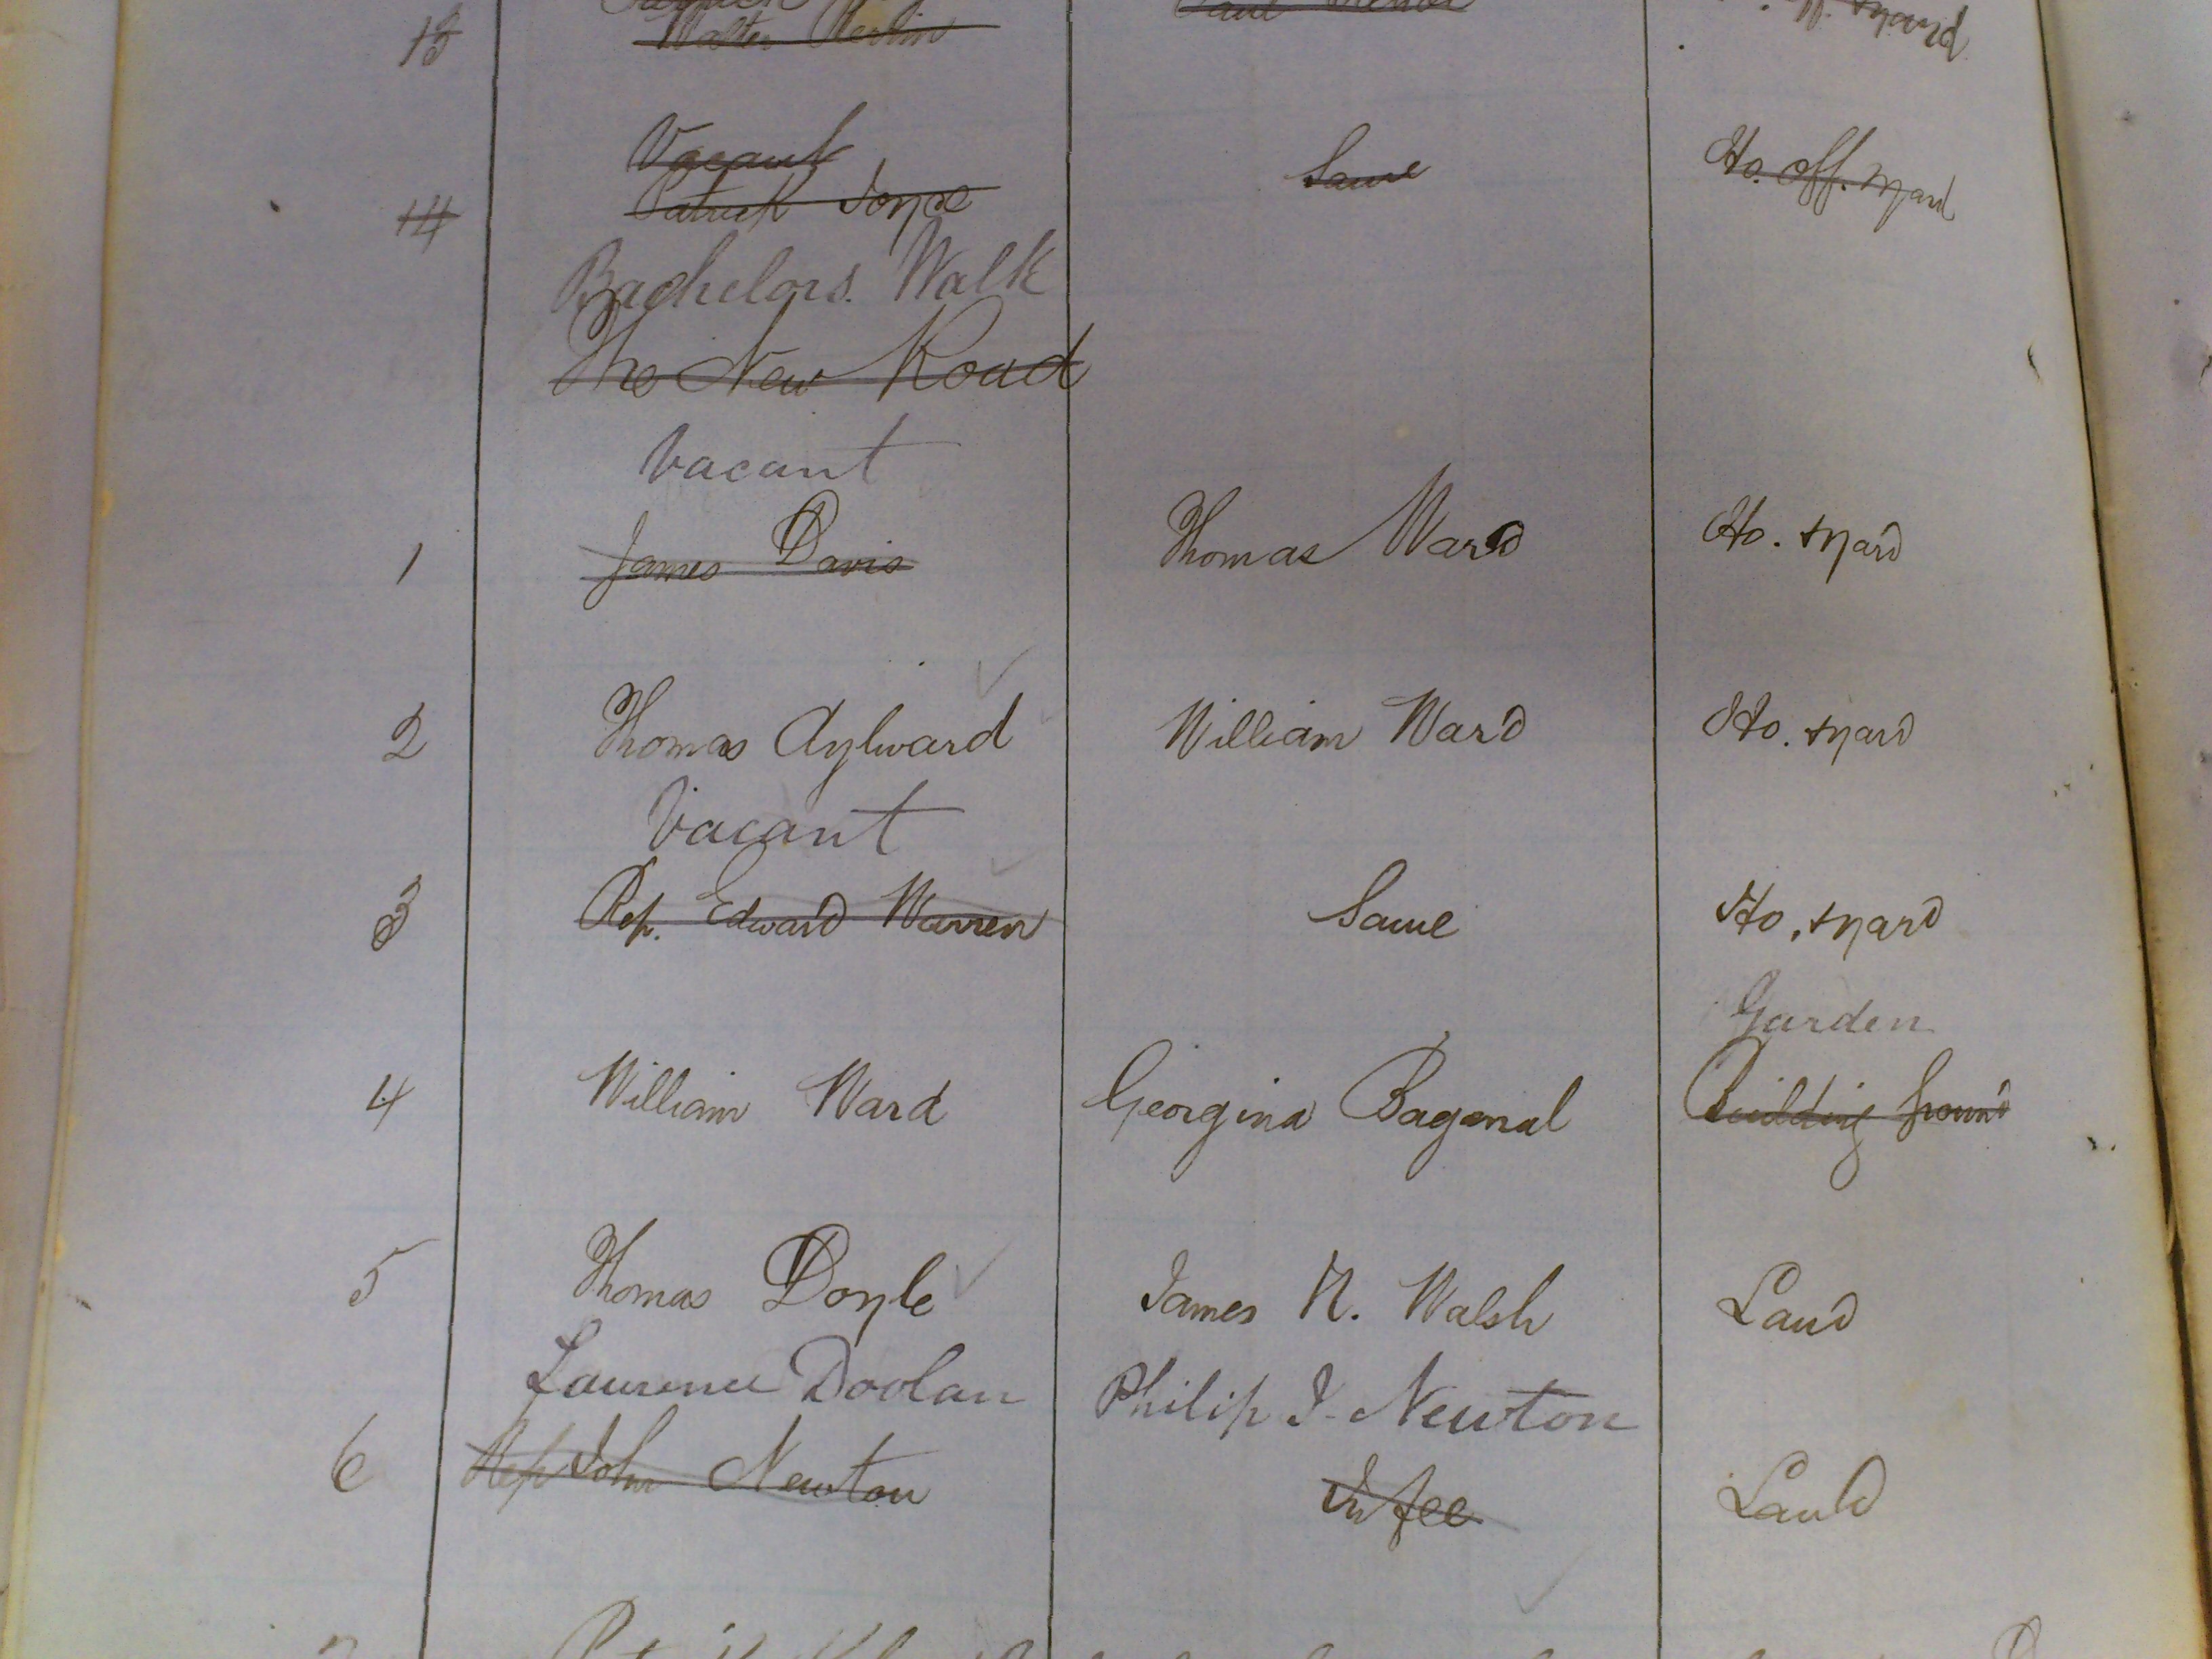 13 Walter
Vacant
14 Patrick Joyce Same Ho. off. & yard
Bachelors. Walk
The New Road
Vacant
1 James Davis Thomas Ward Ho. & yard
2 Thomas Aylward William Ward Ho. & yard
Vacant
3 Rep. Edward Warren Same Ho. & yard
Garden
4 William Ward Georgina Bagenal Building ground
5 Thomas Doyle James H. Walsh Land
Laurence Doolan Philip J. Newton
6 Rep John Newton In fee Land